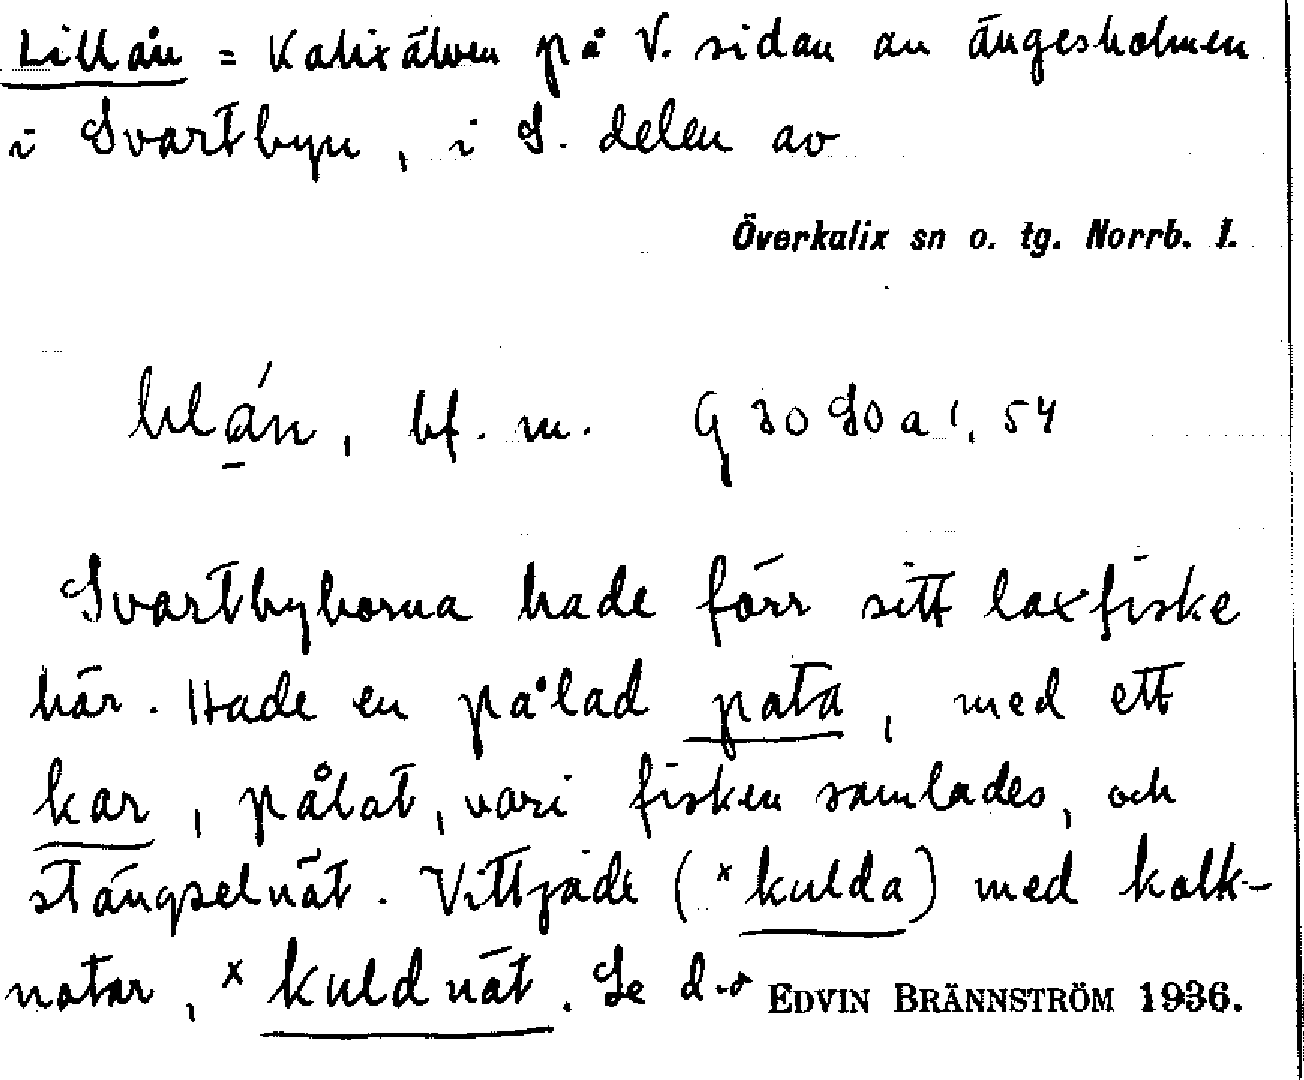 Lillån = Kalixälven på V. sidan an Ängesholmen
i Svartbyn, i S. delen av
Överkalix sn o. tg. Norrb. l.
bf. m. G 30 S0 a 1, 54
Svartbyborna hade förr sitt laxfiske
här. Hade en pålad pata, med ett
kar, pålat, vari fisken samlades, och
stängselnät. Vittjade (×kulda) med kolk-
notar, ×kuldnät. Se d.o
EDVIN BRÄNNSTRÖM 1936.